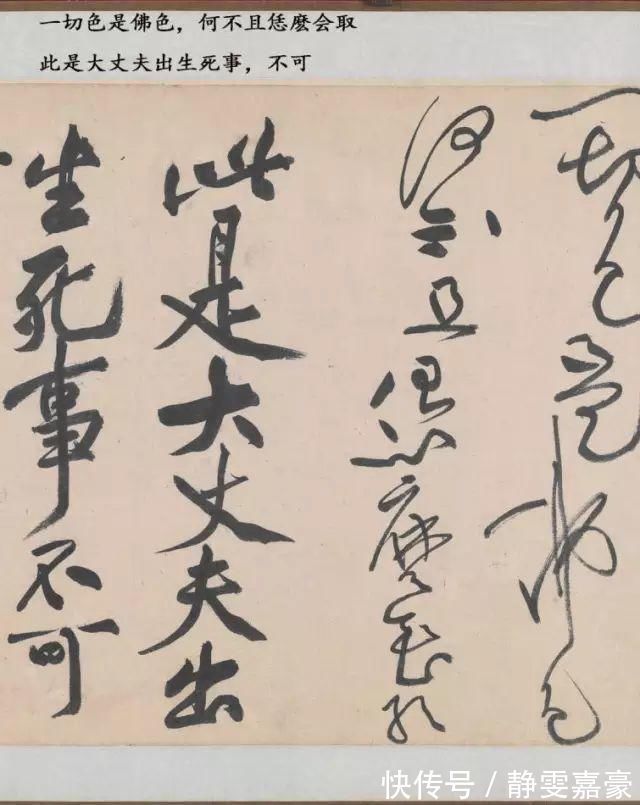 一切色是佛色，何不且恁麽会取
此是大丈夫出生死事，不可
一切色是佛色
何不且恁麼會取
此是大丈夫出
生死事不可
快传号／静雯嘉豪